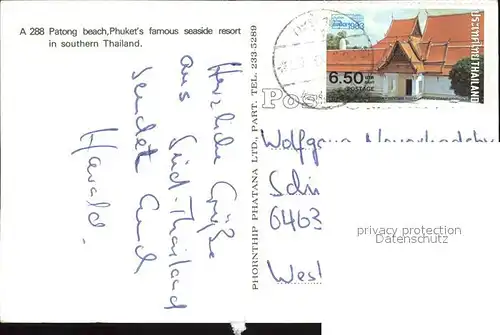 A 288 Patong beach,Phuket's famous seaside resort
in southern Thailand.
Herzliche Grüße
aus
Süd-Thailand
sendet Euch
Harald.
PHORNTHIP PHATANA LTD., PART. TEL. 233 5289
6.50
BAHT
POSTAGE
ประเทศไทย THAILAND
Wolfgang
6463
West
privacy protection
Datenschutz